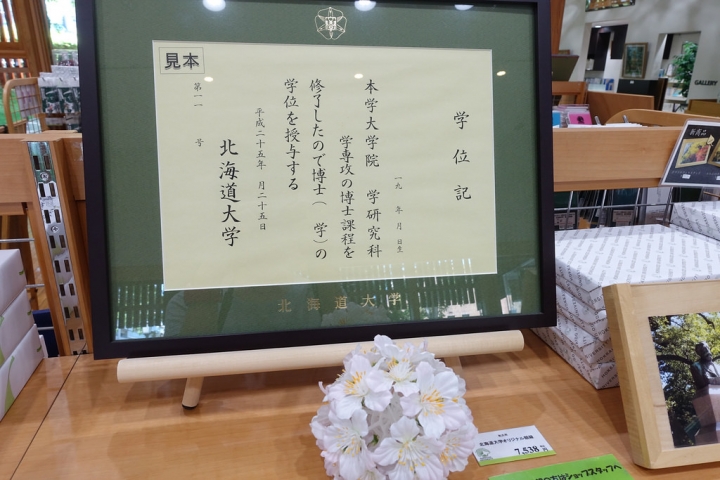 見本
学位記
一九　年　月　日生
本学大学院　学研究科
学専攻の博士課程を
修了したので博士（　学）の
学位を授与する
平成二十五年　月二十五日
北海道大学
第一一　号
北海道大学
GALLERY
新商品
北海道大学オリジナル額縁
7,538
ショップスタッフへ